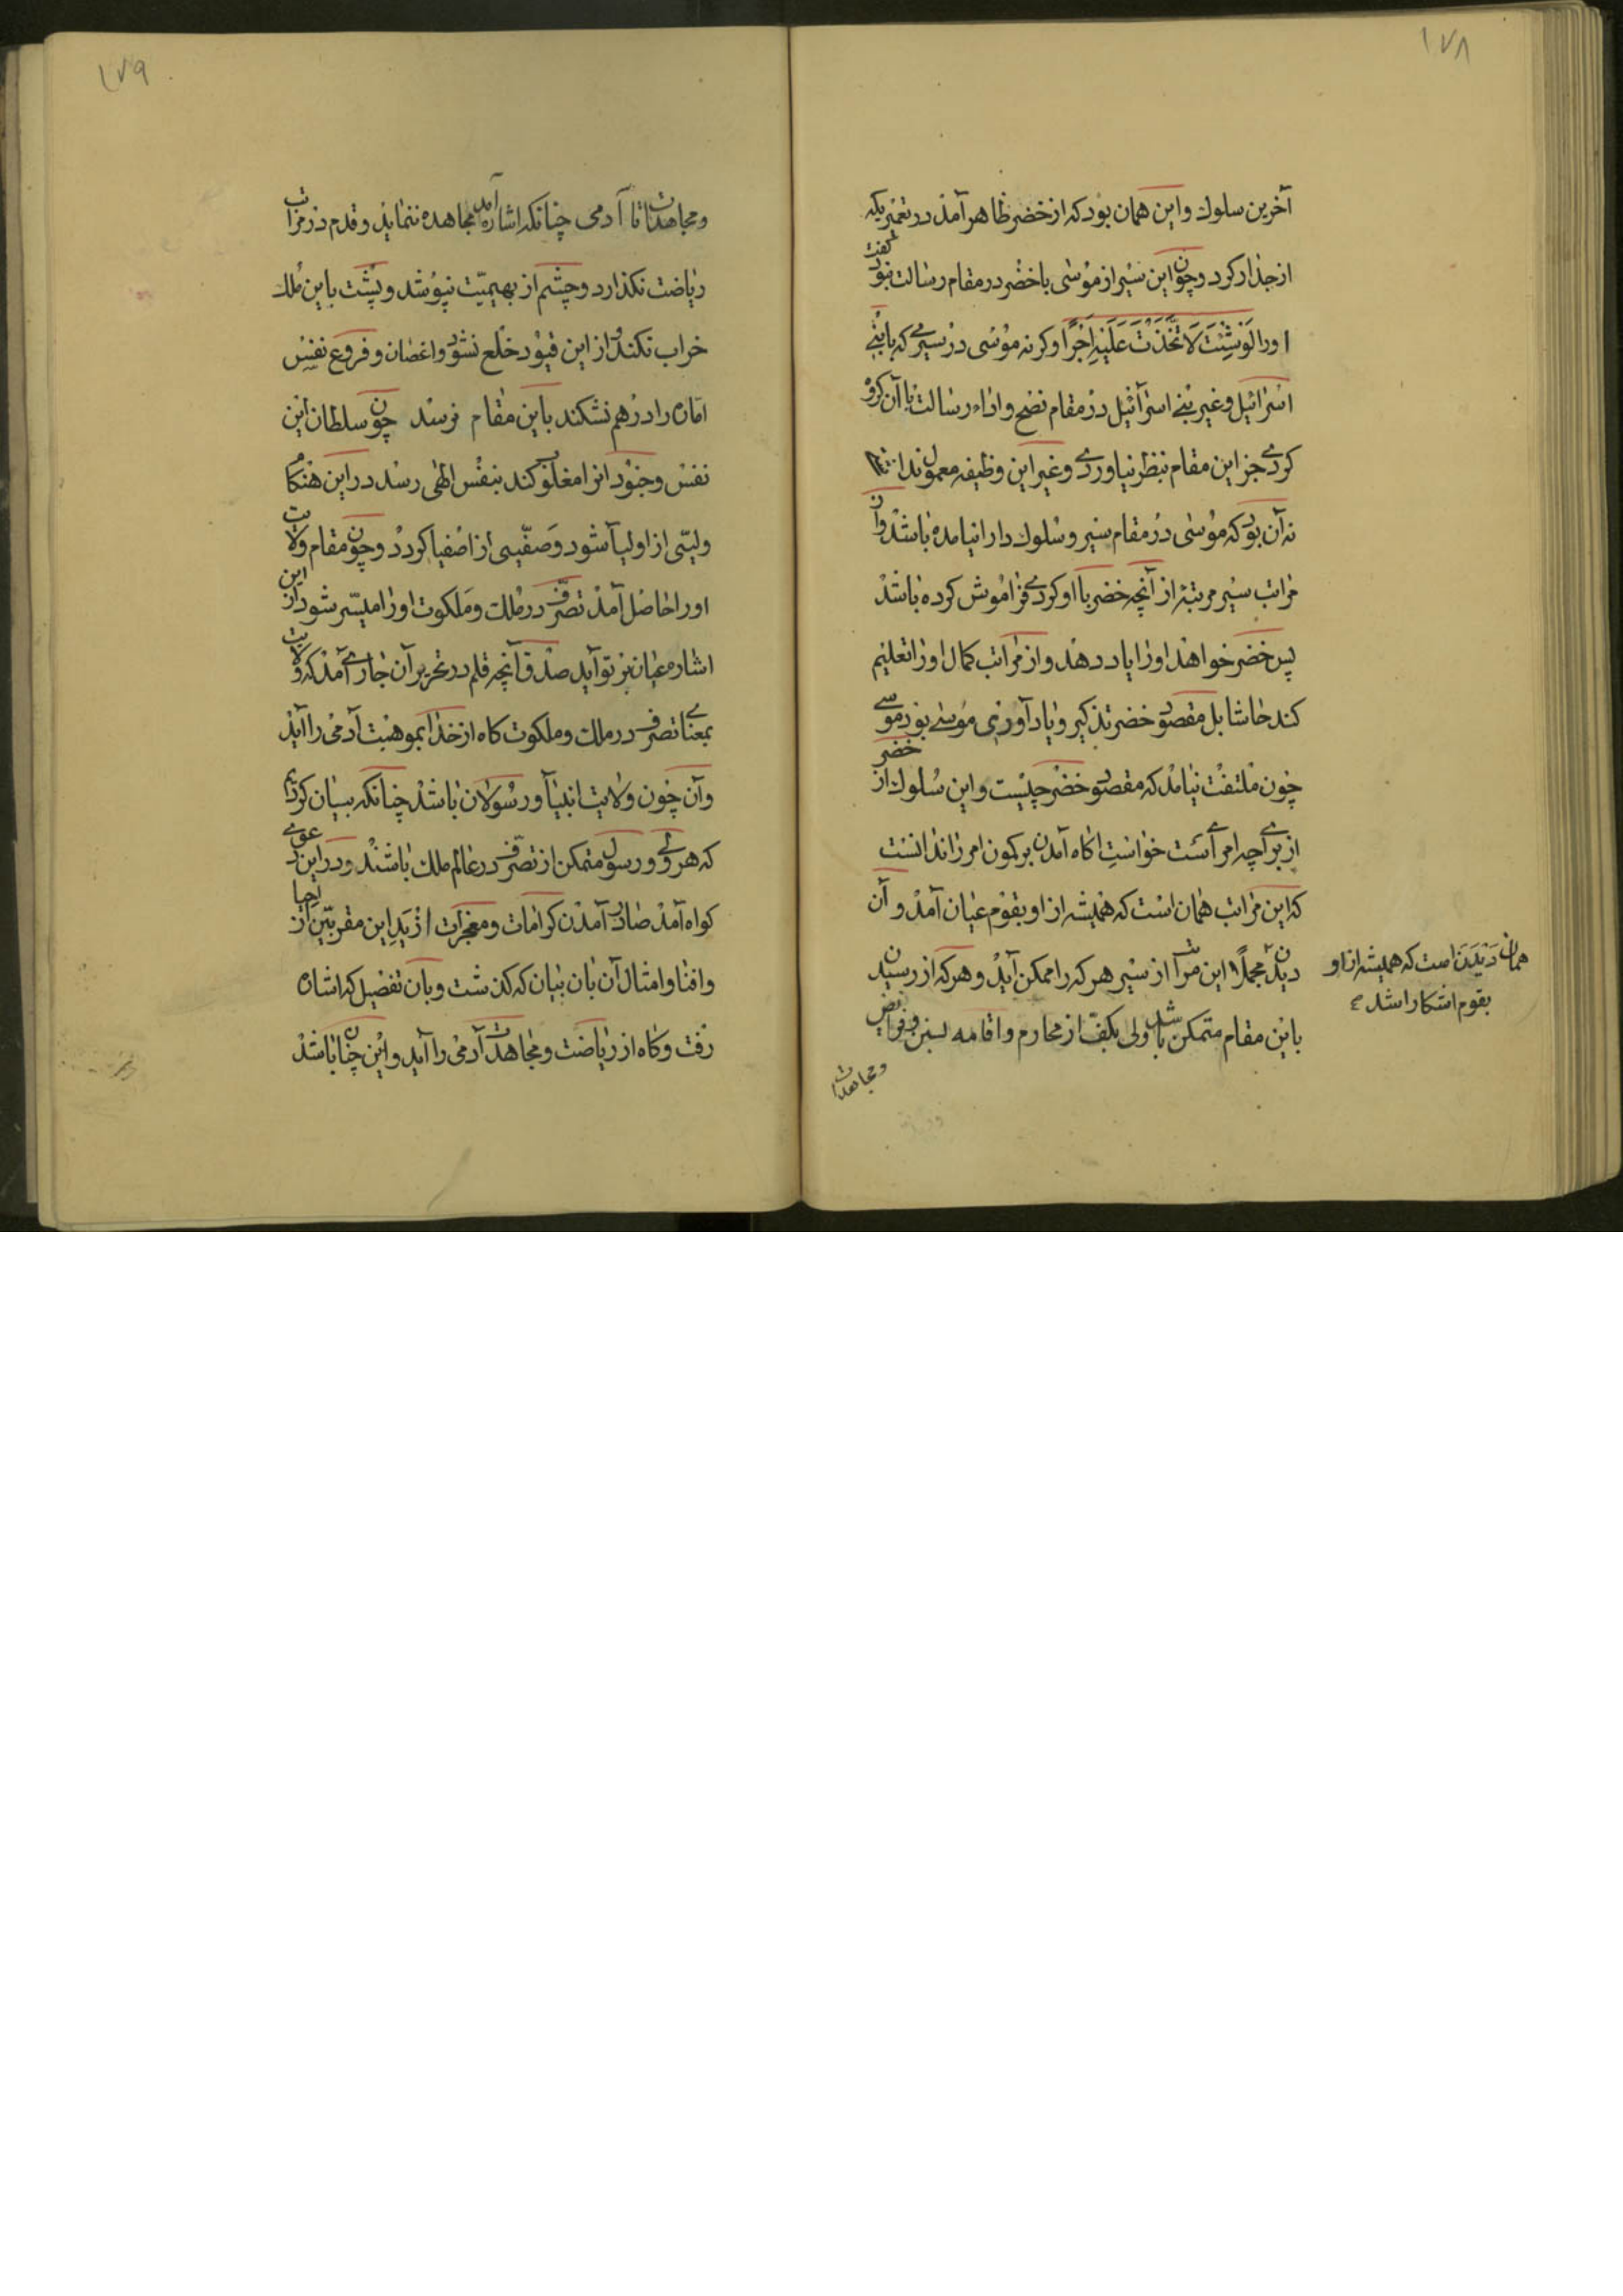 ۱۷۸
آخرین سلوک و این همان بود که از خضر ظاهر آمد در تعمیریکه
از جدار کرد و چون این سیر از موسی با خضر در مقام رسالت نبود گفت
اورا لَوْشِئْتَ لَاتَّخَذْتَ عَلَیْهِ اَجْرًا و کرنه موسی در سیری که با بنی
اسرائیل و غیر بنی اسرآئیل در مقام نصح و اداء رسالت با آن کروه
کردی جز این مقام بنظر نیاوردی و غیر این وظیفه معمول نداشتی
نه آن بود که موسی در مقام سیر و سلوک دارا نیامده باشد و آن
مراتب سیر مرتبۀ از آنچه خضر با او کردی فراموش کرده باشد
پس خضر خواهد اورا یاد دهد و از مراتب کمال اورا تعلیم
کند حاشا بل مقصود خضر تذکیر و یاد آوری موسی بود موسی
چون ملتفت نیامد که مقصود خضر چیست و این سلوک از خضر
از برای چه امری است خواست اکاه آمدن بر کمون امر زاندانست
که این مراتب همان است که همیشه از او بقوم عیان آمد و آن
دیدن مجملًا این مراتب از سیر هر که را ممکن آید و هر که از رسیدن
باین مقام متمکن باشد ولی بکفّ از محارم و اقامه سنن و فرایض
و مجاهدات
همان دَیْدَن است که همیشه از او
بقوم اشکارا شد
۱۷۹
و مجاهدات تا آدمی چنانکه اشاره آمد مجاهده ننماید و قدم در مراتب
ریاضت نکذارد و چشم از بهیمیّت نپوشد و پشت باین مُلک
خراب نکند و از این قیود خلع نشود و اغصان و فروع نفس
امّاره را در هم نشکند باین مقام نرسد چون سلطان این
نفس و جنود انرا مغلوب کند بنفس الهی رسد در این هنکام
ولیّی از اولیآ شود و صفّیی از اصفیا کردد و چون مقام ولایت
اورا حاصل آمد تصرّف در ملک و مَلکوت اورا میسّر شود از این
اشاره عیان بر تو آید صدق آنچه قلم در تحریر آن جاری آمد که ولایت
بمعنای تصرف در ملک و ملکوت کاه از خدا بموهبت آدمی را آید
و آن چون ولایت انبیآ و رسولان باشد چنانکه بیان کردیم
که هر ولی و رسول متمکن از تصرّف در عالم ملک باشند و در این دعوی
کواه آمد صادر آمدن کرامات و معجزات از یَدِ این مقربّین از احیا
و افنا و امثال آن بان بیان که کذشت و بان تفصیل که اشاره
رفت و کاه از ریاضت و مجاهدت آدمی را آید و این چنان باشد